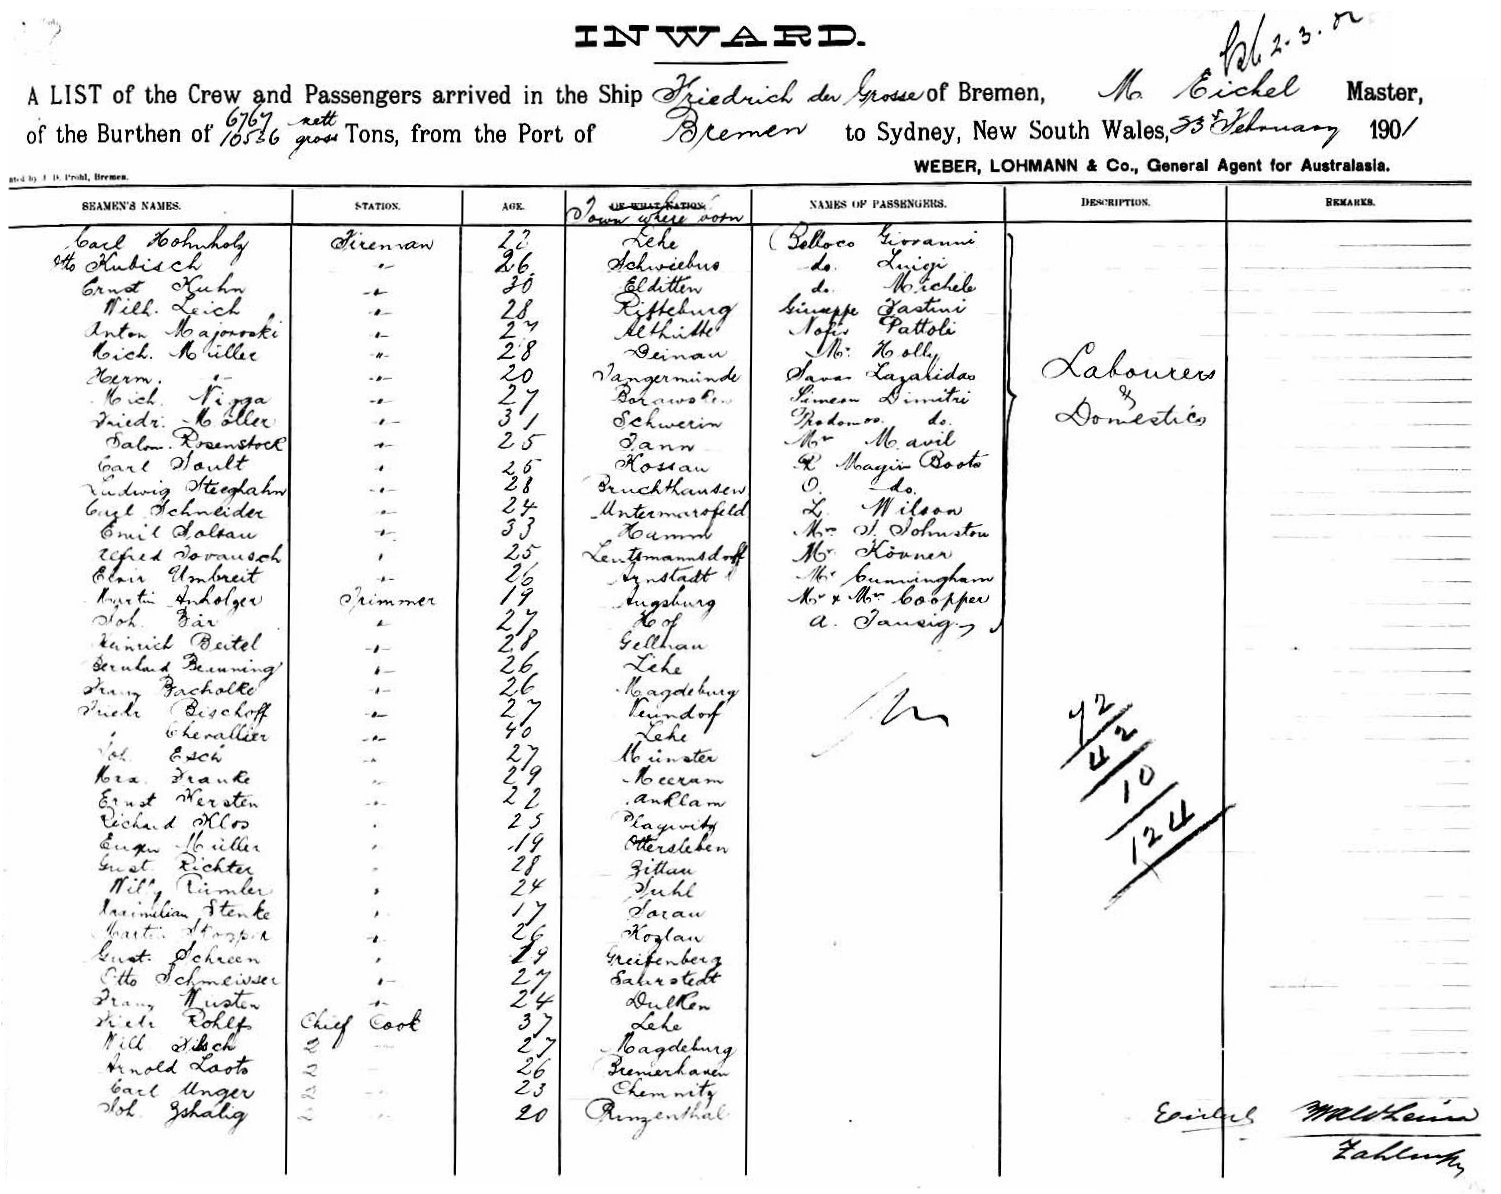 INWARD.
2. 3.
A LIST of the Crew and Passengers arrived in the Ship Friedrich der Grosse of Bremen, M. Eichel Master,
6767 nett
of the Burthen of 10536 gross Tons, from the Port of Bremen to Sydney, New South Wales, 23d February 1901
WEBER, LOHMANN & Co., General Agent for Australasia.
Prohl, Bremen.
SEAMEN'S NAMES. STATION. AGE. OF WHAT NATION. NAMES OF PASSENGERS. DESCRIPTION. REMARKS.
Town where born
Carl Hohnholz Fireman 22 Lehe Belloco Giovanni
Otto Kubisch -"- 26 Schwiebus do. Luigi
Ernst Kuhn -"- 30 Elditten do. Michele
Wilh. Leich -"- 28 Ritteburg Giuseppe Fastini
Anton Majowski -"- 27 Althütte Pattoli
Mich. Müller -"- 28 Deinau Mr. Holly
Herm. -"- -"- 20 Tangermünde Savas Lazaridas
Mich. Nigga -"- 27 Simeon Dimitri
Friedr. Möller -"- 31 Schwerin Prodomos do.
Salom. Rosenstock -"- 25 Tann Mr Mavil
Carl Soult -"- 25 Kossau R Magin Boots
Ludwig Steeghahn -"- 28 Bruchthausen O. -do.
Carl Schneider -"- 24 Untermarsfeld L. Wilson
Emil Solsau -"- 33 Hamm Mrs J. Johnston
Alfred Tovausch " 25 Leutzmannsdorff Mr Kövner
Elair Umbreit -"- 26 Arnstadt Mr Cunningham
Martin Anholzer Trimmer 19 Augsburg Mr & Mrs Coopper
Joh. Bär " 27 Hof A. Tausig
Labourers
&
Domestics
Heinrich Beitel -"- 28 Gellnau
Bernhard Beunning "- 26 Lehe
Franz Bacholke -"- 26 Magdeburg
Friedr Bischoff -"- 27 Neundorf
" Chevallier -"- 40 Lehe
Joh. Esch -"- 27 Münster
Max. Franke " 29 Meeram
Ernst Kersten -"- 22 Anklam
Richard Klos " 25 Plagwitz
Eugen Müller " 19 Ottersleben
Gust. Richter " 28 Zittau
Willy Rümler " 24 Suhl
Maximilian Stenke " 17 Sorau
Martin -"- 26 Kozlau
Gust. Schreen " 29 Greifenberg
Otto Schmeisser "- 27 Sarstedt
Franz Wusten -"- 24 Dulken
Friedr Rohlfs Chief Cook 37 Lehe
Will. Filsch 2 27 Magdeburg
Arnold Loots 2 26 Bremerhaven
Carl Unger 2 23 Chemnitz
Joh. Zshalig 2 20 Prinzenthal
72
42
10
124